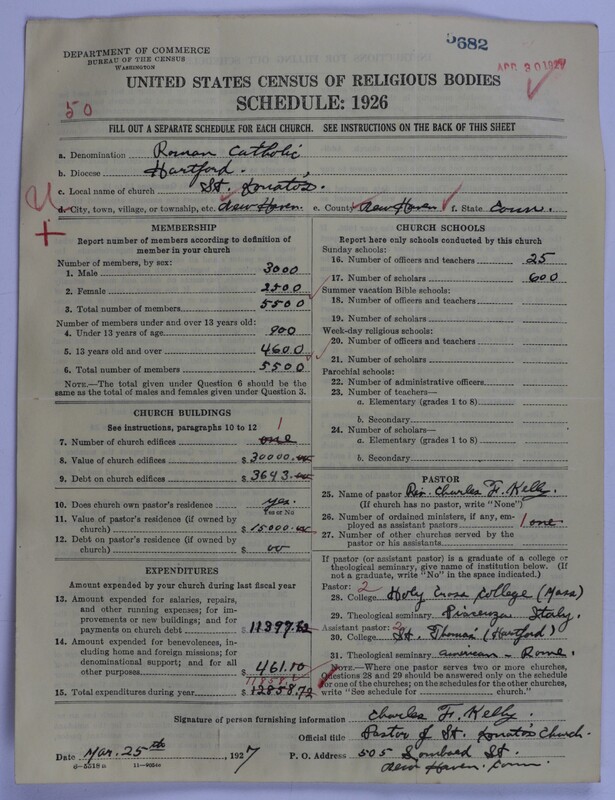 DEPARTMENT OF COMMERCE
BUREAU OF THE CENSUS
WASHINGTON
3682
APR 20 1927
UNITED STATES CENSUS OF RELIGIOUS BODIES
SCHEDULE: 1926
50
FILL OUT A SEPARATE SCHEDULE FOR EACH CHURCH. SEE INSTRUCTIONS ON THE BACK OF THIS SHEET
a. Denomination Roman Catholic
b. Diocese Hartford.
c. Local name of church St. Donato's.
d. City, town, village, or township, etc. New Haven. e. County New Haven f. State Conn.
MEMBERSHIP
Report number of members according to definition of member in your church
Number of members, by sex:
1. Male 3000
2. Female 2500
3. Total number of members 5500
Number of members under and over 13 years old:
4. Under 13 years of age 900
5. 13 years old and over 4600
6. Total number of members 5500
NOTE.—The total given under Question 6 should be
the same as the total of males and females given under Question 3.
CHURCH BUILDINGS
See instructions, paragraphs 10 to 12
1
7. Number of church edifices one
8. Value of church edifices $ 30000.00
9. Debt on church edifices $ 3643.00
10. Does church own pastor's residence yes.
Yes or No
11. Value of pastor's residence (if owned by
church) $ 15000.00
12. Debt on pastor's residence (if owned by
church) $ 00
EXPENDITURES
Amount expended by your church during last fiscal year
13. Amount expended for salaries, repairs,
and other running expenses; for im-
provements or new buildings; and for
payments on church debt $ 11397.72
14. Amount expended for benevolences, in-
cluding home and foreign missions; for
denominational support; and for all
other purposes $ 461.10
15. Total expenditures during year $ 12858.72
CHURCH SCHOOLS
Report here only schools conducted by this church
Sunday schools:
16. Number of officers and teachers 25
17. Number of scholars 600
Summer vacation Bible schools:
18. Number of officers and teachers
19. Number of scholars
Week-day religious schools:
20. Number of officers and teachers
21. Number of scholars
Parochial schools:
22. Number of administrative officers
23. Number of teachers—
a. Elementary (grades 1 to 8)
b. Secondary
24. Number of scholars—
a. Elementary (grades 1 to 8)
b. Secondary
PASTOR
25. Name of pastor Rev. Charles F. Kelly.
(If church has no pastor, write "None")
26. Number of ordained ministers, if any, em-
ployed as assistant pastors 1 one
27. Number of other churches served by the
pastor or his assistants
If pastor (or assistant pastor) is a graduate of a college or
theological seminary, give name of institution below. (If
not a graduate, write "No" in the space indicated.)
Pastor: 2
28. College Holy Cross College (Mass)
29. Theological seminary Piacenza Italy.
Assistant pastor: 2
30. College St. Thomas (Hartford)
31. Theological seminary American - Rome.
NOTE.—Where one pastor serves two or more churches,
Questions 28 and 29 should be answered only on the schedule
for one of the churches; on the schedules for the other churches,
write "See schedule for church."
Signature of person furnishing information Charles F. Kelly.
Official title Pastor of St. Donato's Church.
Date Mar. 25th, 1927 P. O. Address 505 Lombard St.
New Haven. Conn.